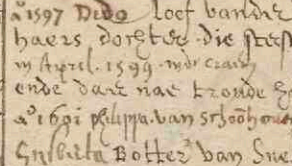 aº 1597 Dedo loef vander
haers dochter. die sterf
in April. 1599. inde craem
ende daer nae troude h
aº 1601 philippa. van Schoohove
Gisberta Botter van Sne